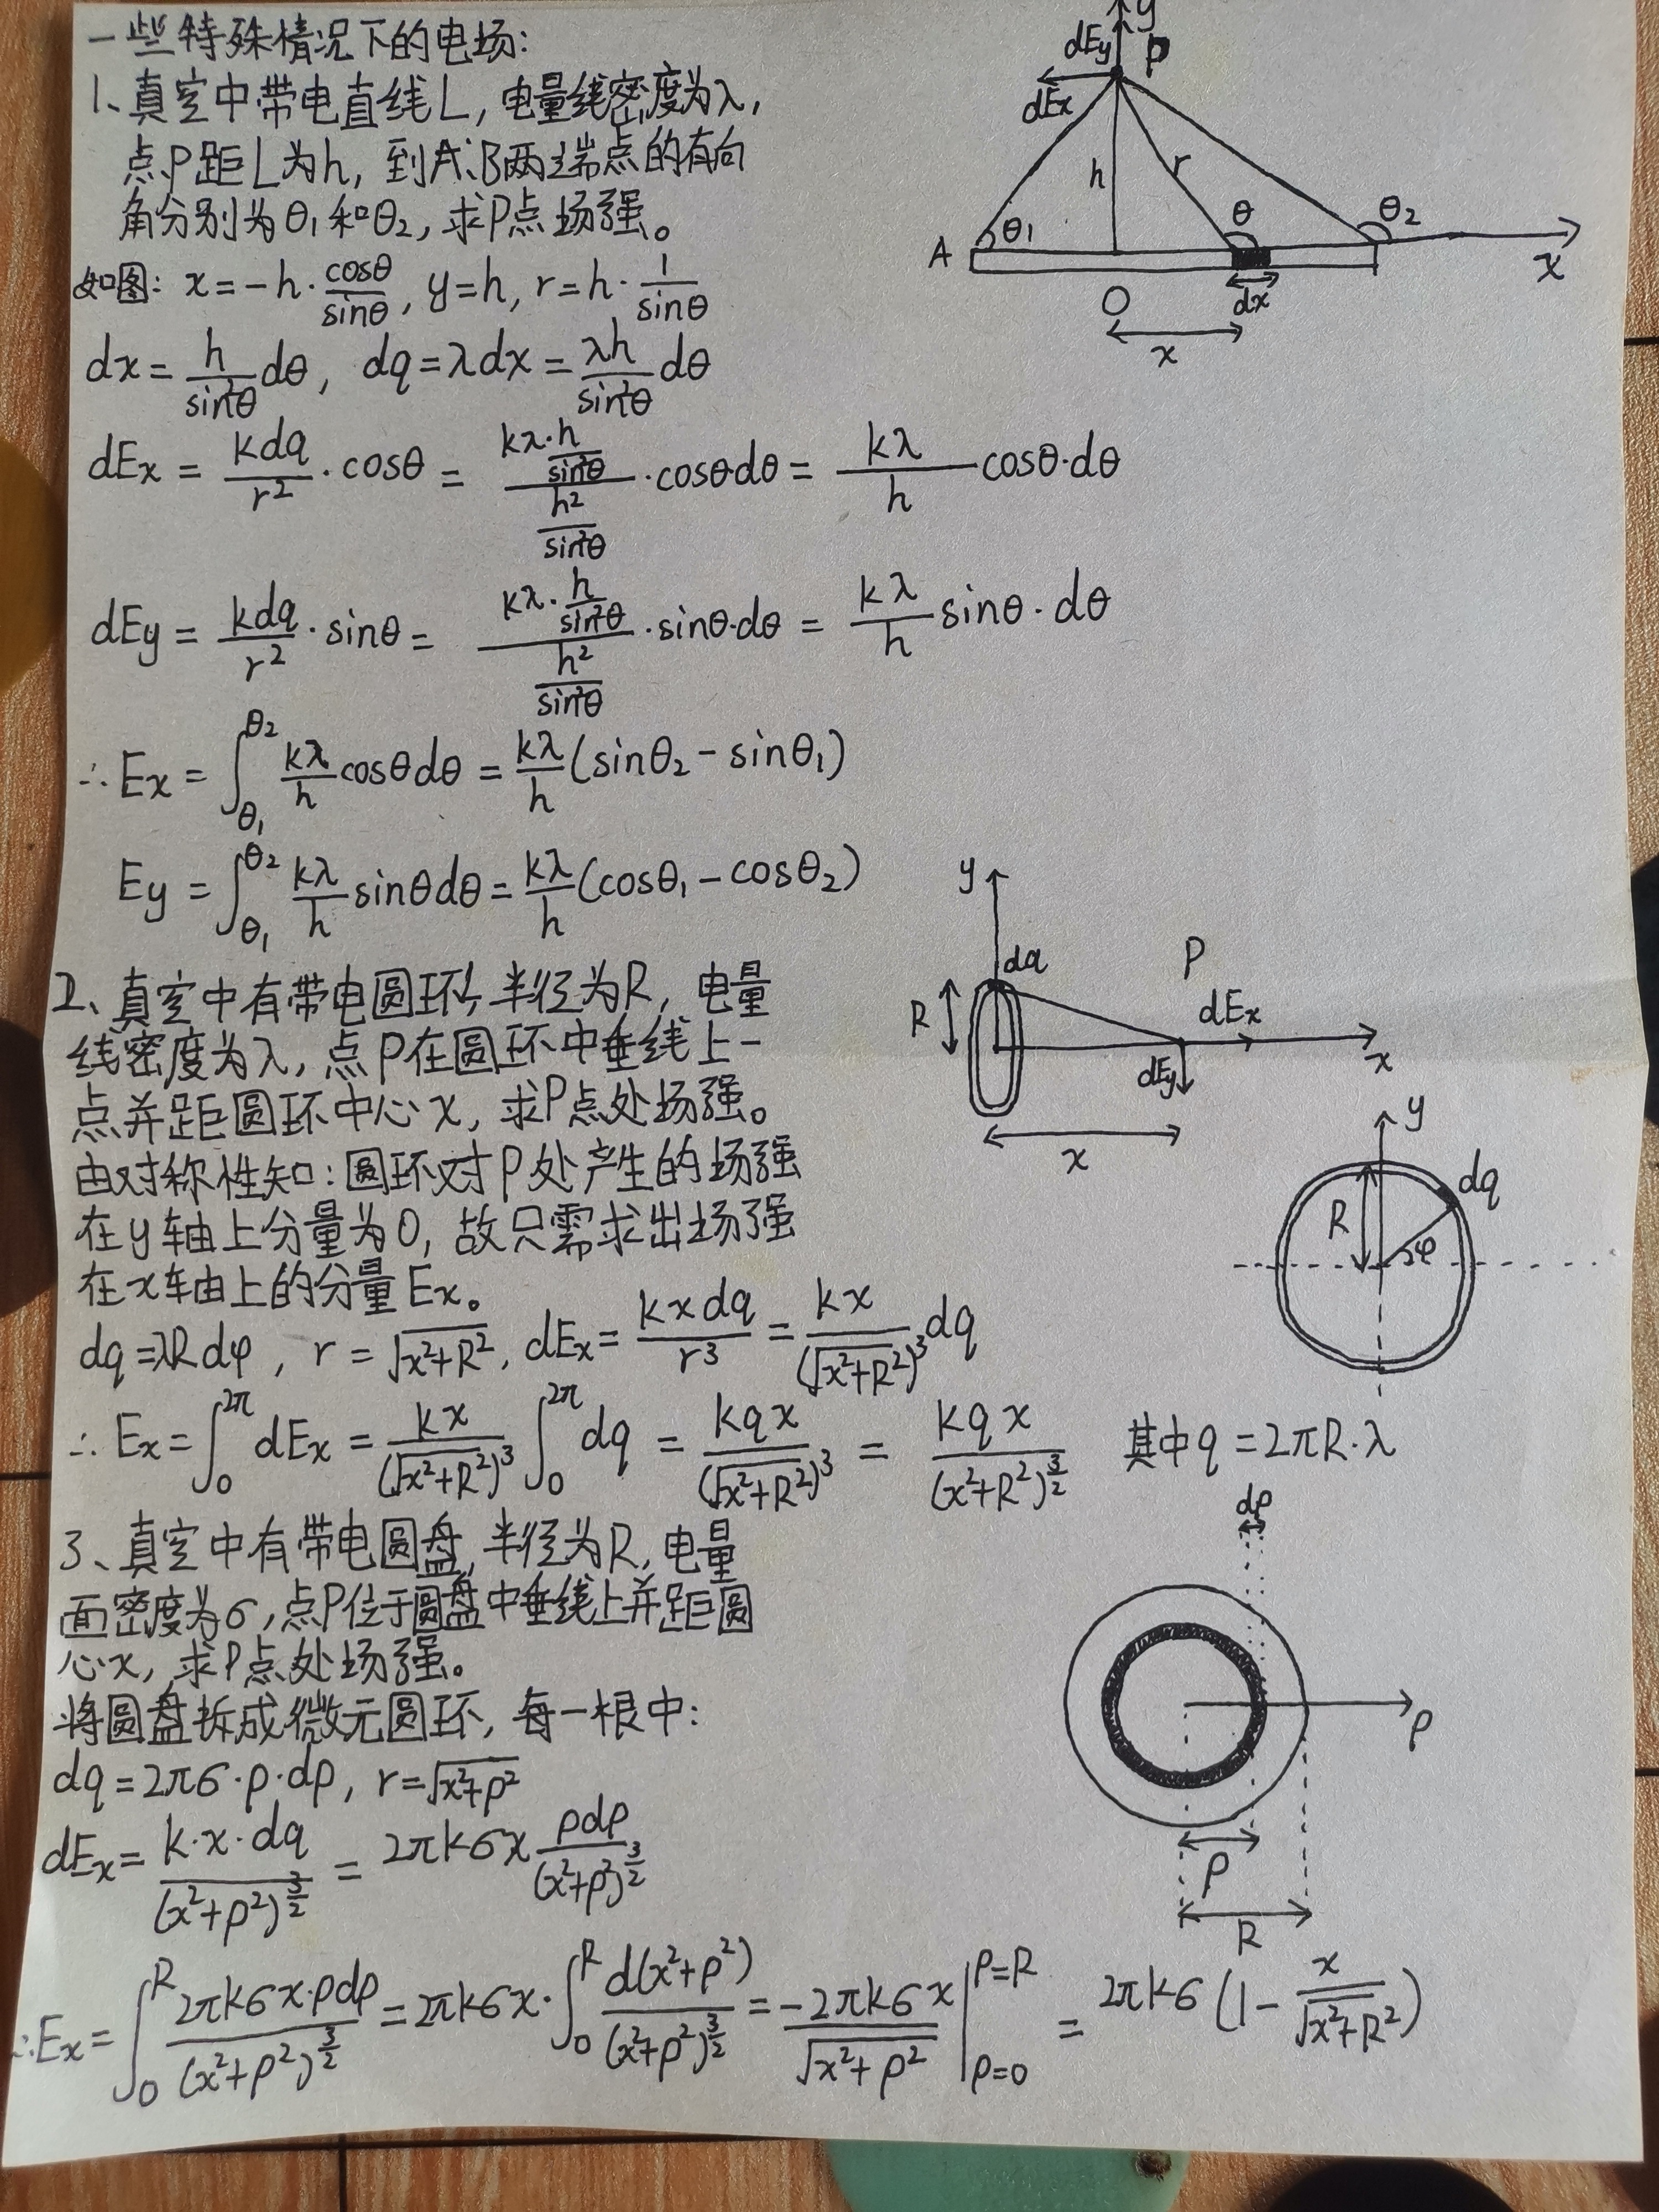 一些特殊情况下的电场:
1、真空中带电直线L,电量线密度为λ,
点P距L为h,到A、B两端点的有向
角分别为θ₁和θ₂,求P点场强。
如图: x=-h·cosθ/sinθ, y=h, r=h·1/sinθ
dx=h/sin²θ dθ, dq=λdx=λh/sin²θ dθ
dEx=kdq/r²·cosθ=(kλ·h/sin²θ)/(h²/sin²θ)·cosθ·dθ=kλ/h cosθ·dθ
dEy=kdq/r²·sinθ=(kλ·h/sin²θ)/(h²/sin²θ)·sinθ·dθ=kλ/h sinθ·dθ
∴Ex=∫_θ₁^θ₂ kλ/h cosθdθ=kλ/h(sinθ₂-sinθ₁)
Ey=∫_θ₁^θ₂ kλ/h sinθdθ=kλ/h(cosθ₁-cosθ₂)
y
dEy
P
dEx
h
r
A
θ₁
θ
θ₂
x
O
dx
x
2、真空中有带电圆环,半径为R,电量
线密度为λ,点P在圆环中垂线上一
点并距圆环中心x,求P点处场强。
由对称性知:圆环对P处产生的场强
在y轴上分量为0,故只需求出场强
在x轴上的分量Ex。
dq=λRdφ, r=√(x²+R²), dEx=kxdq/r³=kx/(√(x²+R²))³ dq
∴Ex=∫_0^2π dEx=kx/(√(x²+R²))³ ∫_0^2π dq=kqx/(√(x²+R²))³=kqx/(x²+R²)^(3/2) 其中q=2πR·λ
y
dq
P
R
dEx
x
dEy
x
y
dq
R
φ
3、真空中有带电圆盘,半径为R,电量
面密度为σ,点P位于圆盘中垂线上并距圆
心x,求P点处场强。
将圆盘拆成微元圆环,每一根中:
dq=2πσ·ρ·dρ, r=√(x²+ρ²)
dEx=k·x·dq/(x²+ρ²)^(3/2)=2πkσx ρdρ/(x²+ρ²)^(3/2)
∴Ex=∫_0^R 2πkσx·ρdρ/(x²+ρ²)^(3/2)=2πkσx·∫_0^R d(x²+ρ²)/(x²+ρ²)^(3/2)=-2πkσx/√(x²+ρ²)|_ρ=0^ρ=R=2πkσ(1-x/√(x²+R²))
dρ
ρ
ρ
R